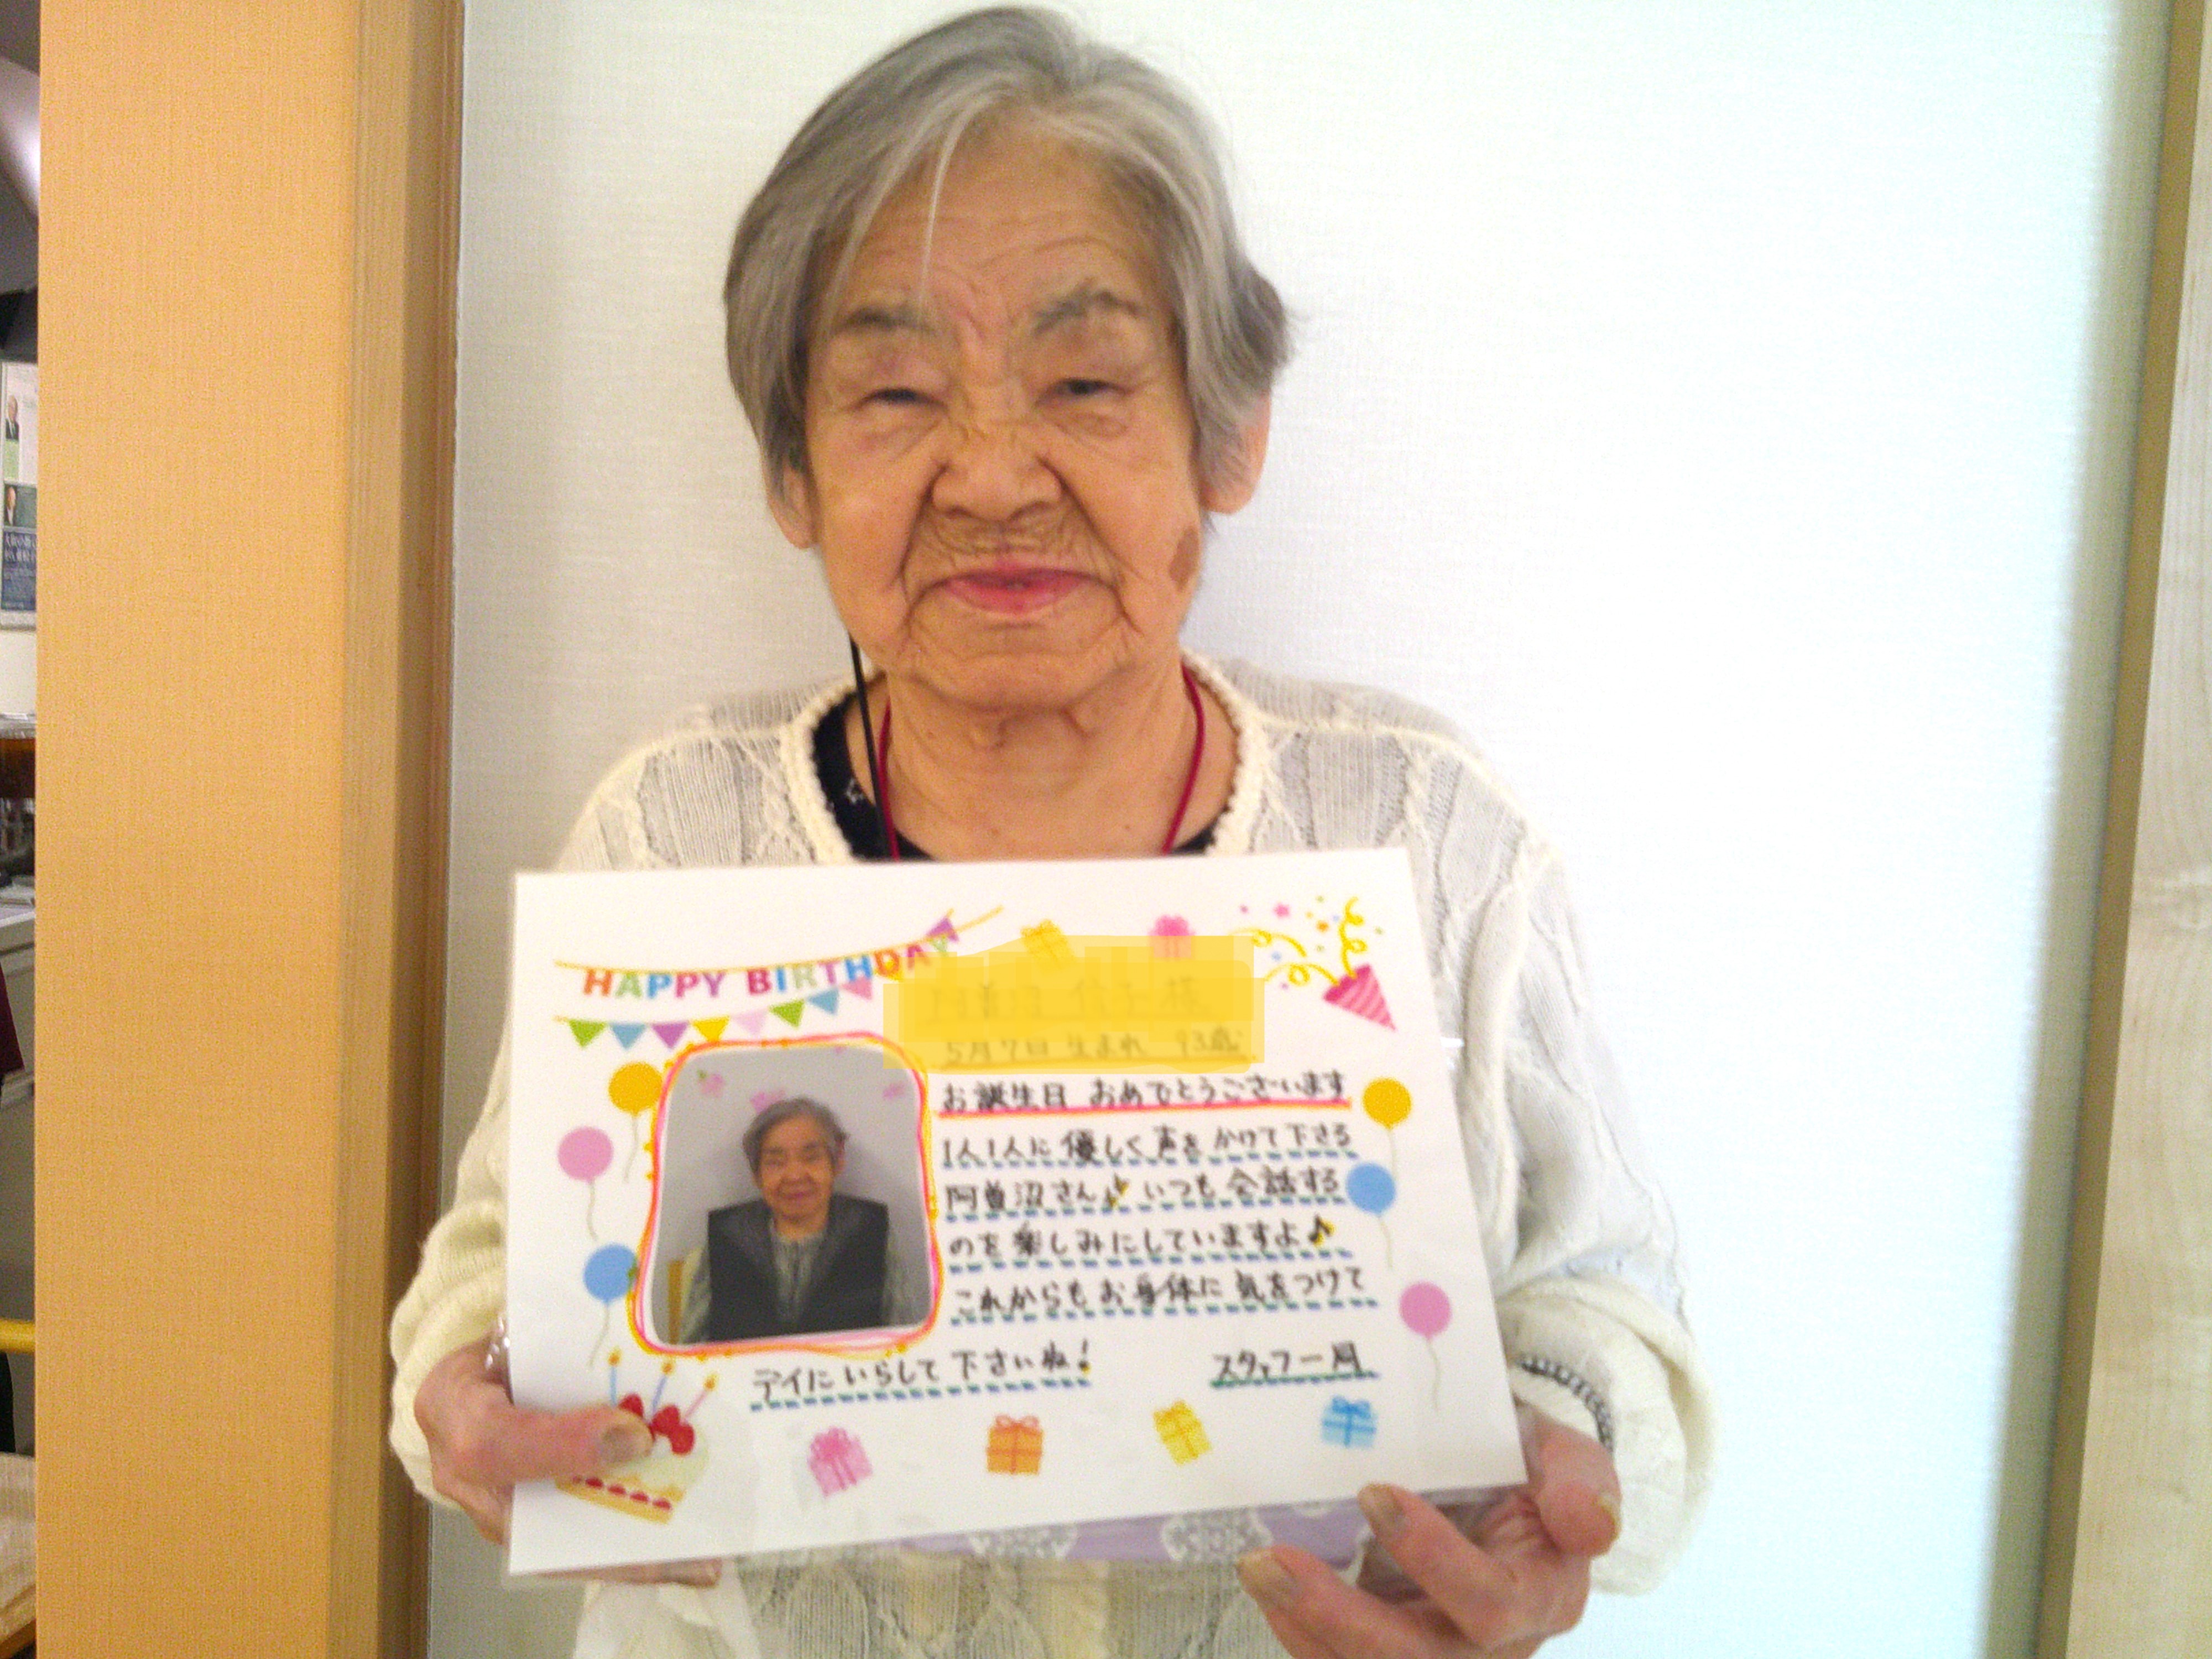 HAPPY BIRTHDAY
5月7日 生まれ 93歳
お誕生日 おめでとうございます
1人1人に 優しく 声を かけて 下さる
阿曽沼さん♪ いつも 会話する
のを 楽しみにしていますよ♪
これからも お身体に 気をつけて
デイに いらして 下さいね!
スタッフ一同